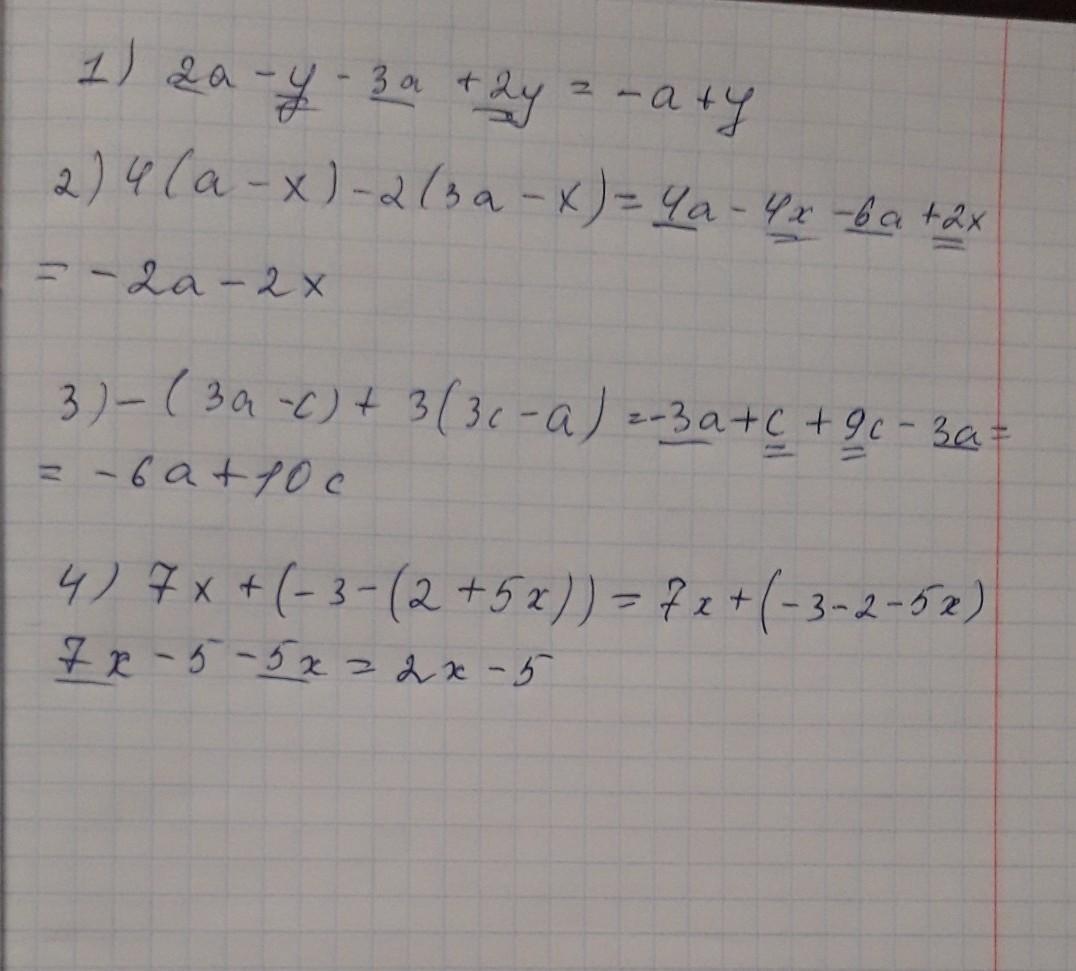 1) 2a - y - 3a + 2y = -a + y
2) 4(a - x) - 2(3a - x) = 4a - 4x - 6a + 2x
= -2a - 2x
3) - (3a - c) + 3(3c - a) = -3a + c + 9c - 3a =
= -6a + 10c
4) 7x + (-3 - (2 + 5x)) = 7x + (-3 - 2 - 5x)
7x - 5 - 5x = 2x - 5